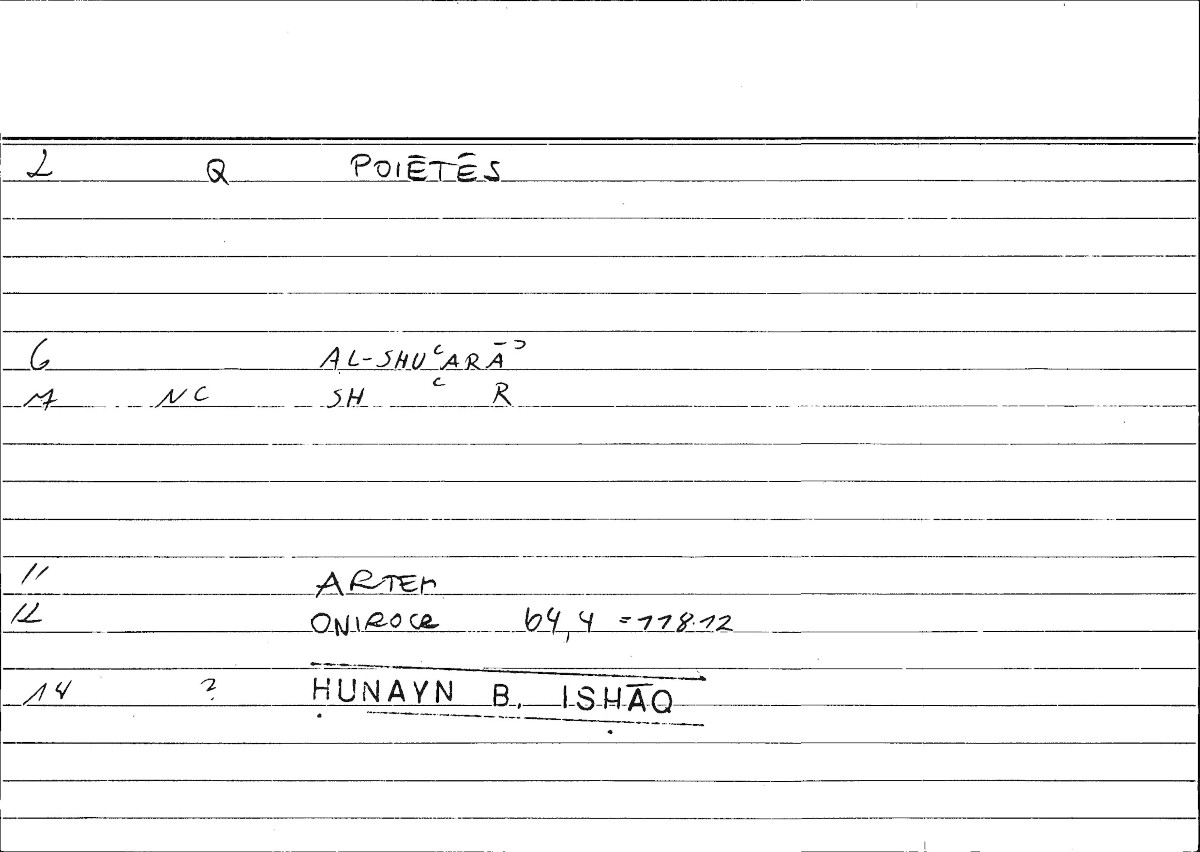 2 Q POIĒTĒS
6 AL-SHUʿARĀʾ
7 NC SH ʿ R
11 ARTEM
12 ONIROCR 64,4 = 118.12
14 ? ḤUNAYN B. ISḤĀQ